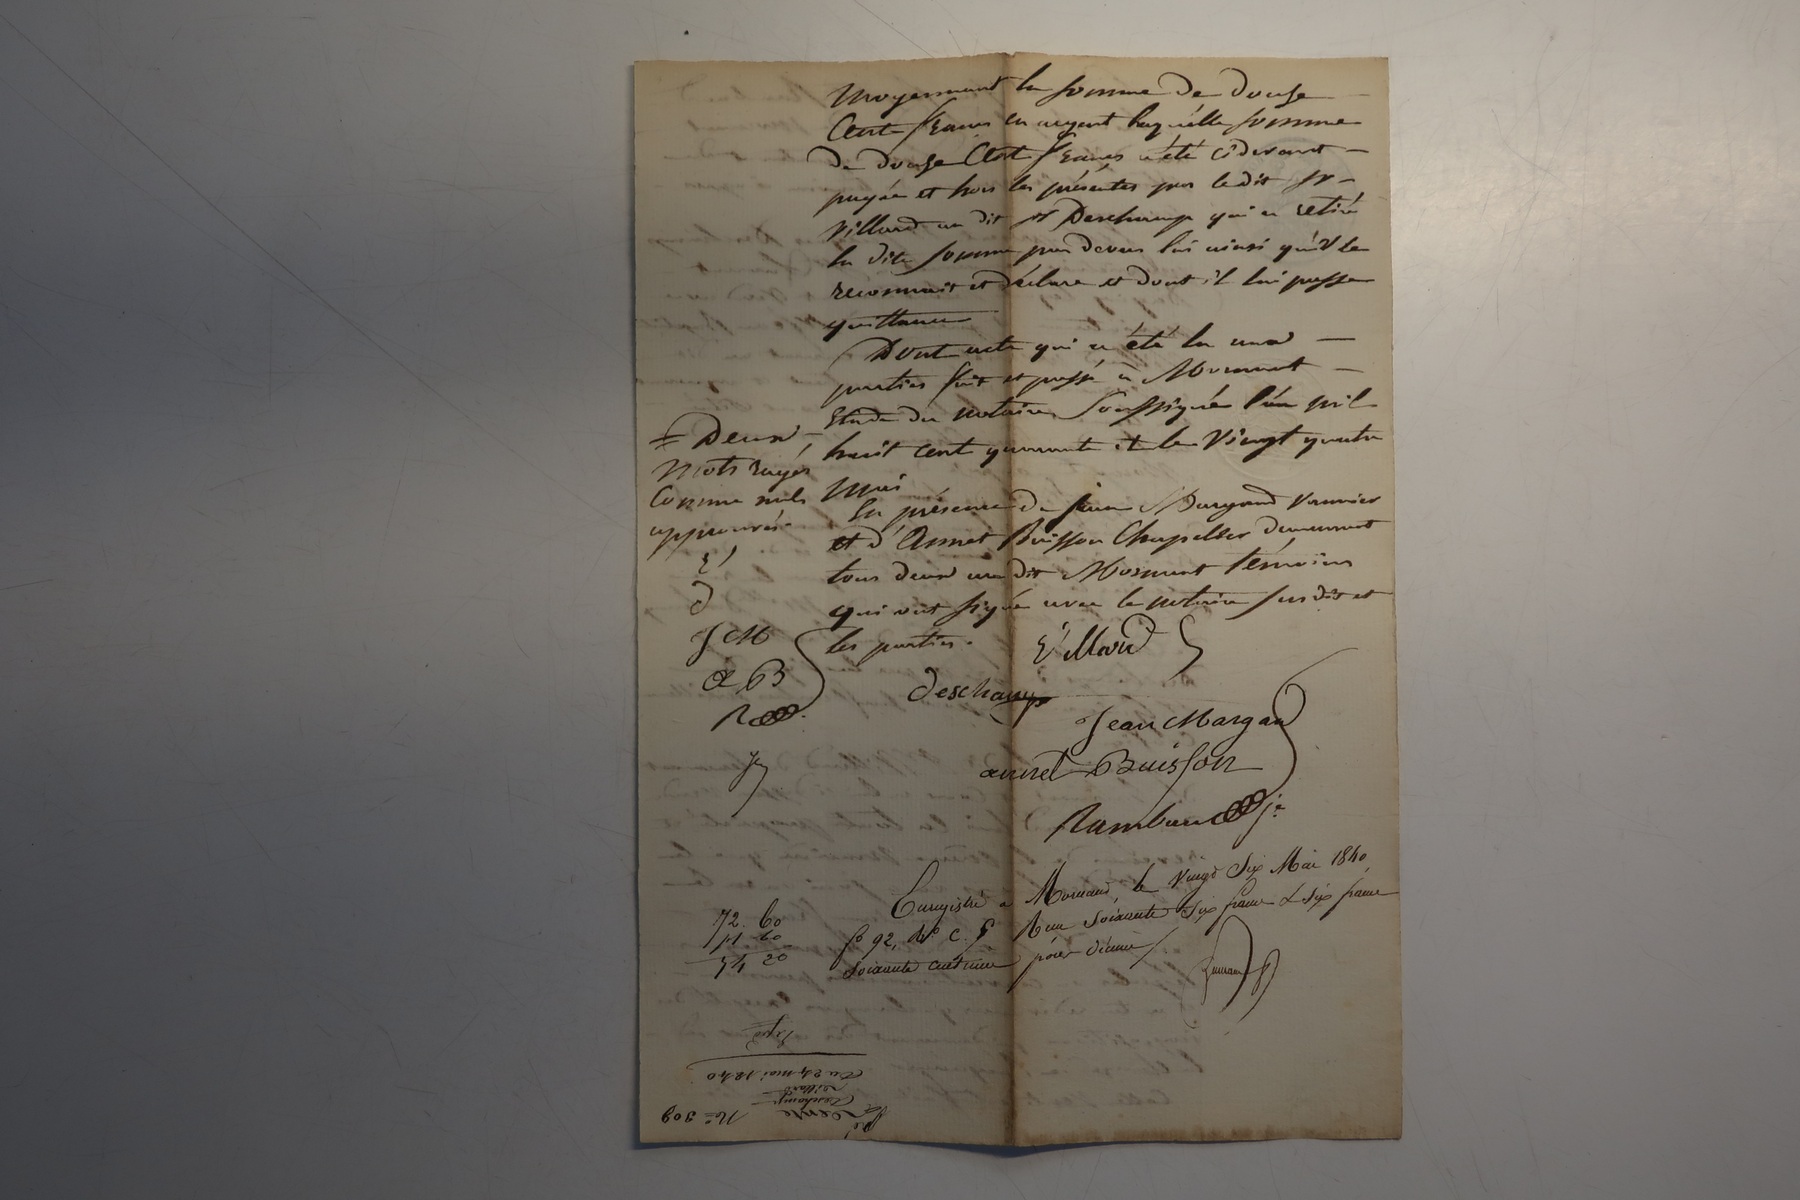 Moyennant la somme de douse
Cent francs en argent laquelle somme
de douse Cent francs a été cidevant
payée et hors les présentes par ledit sr
Villard au dit sr Deschamp qui a retiré
la dite somme par devers lui ainsi qu'il le
reconnait et déclare et dont il lui passe
quittance
Dont acte qui a été lu aux
parties fait et passé à Mornant
Etude du notaire soussigné l'an mil
huit cent quarante et le vingt quatre
mai
En présence de Jean Margand vannier
et d'Annet Buisson Chapellier demeurant
tous deux au dit Mornant témoins
qui ont signé avec le notaire susdit et
les parties.
= Deux
mots rayés
comme nuls
approuvés.
v
d
J M
a B
R
Villard
deschamp
Jean Margand
annet Buisson
Rambaud je
Enregistré à Mornand le vingt six Mai 1840
fo 92, Vo c. 5 Reçu soixante six francs & six francs
soixante centimes pour décime
72. 60
11 60
74 20
No 309
Vente
Deschamp
Villard
Du 24 mai 1840
Expé